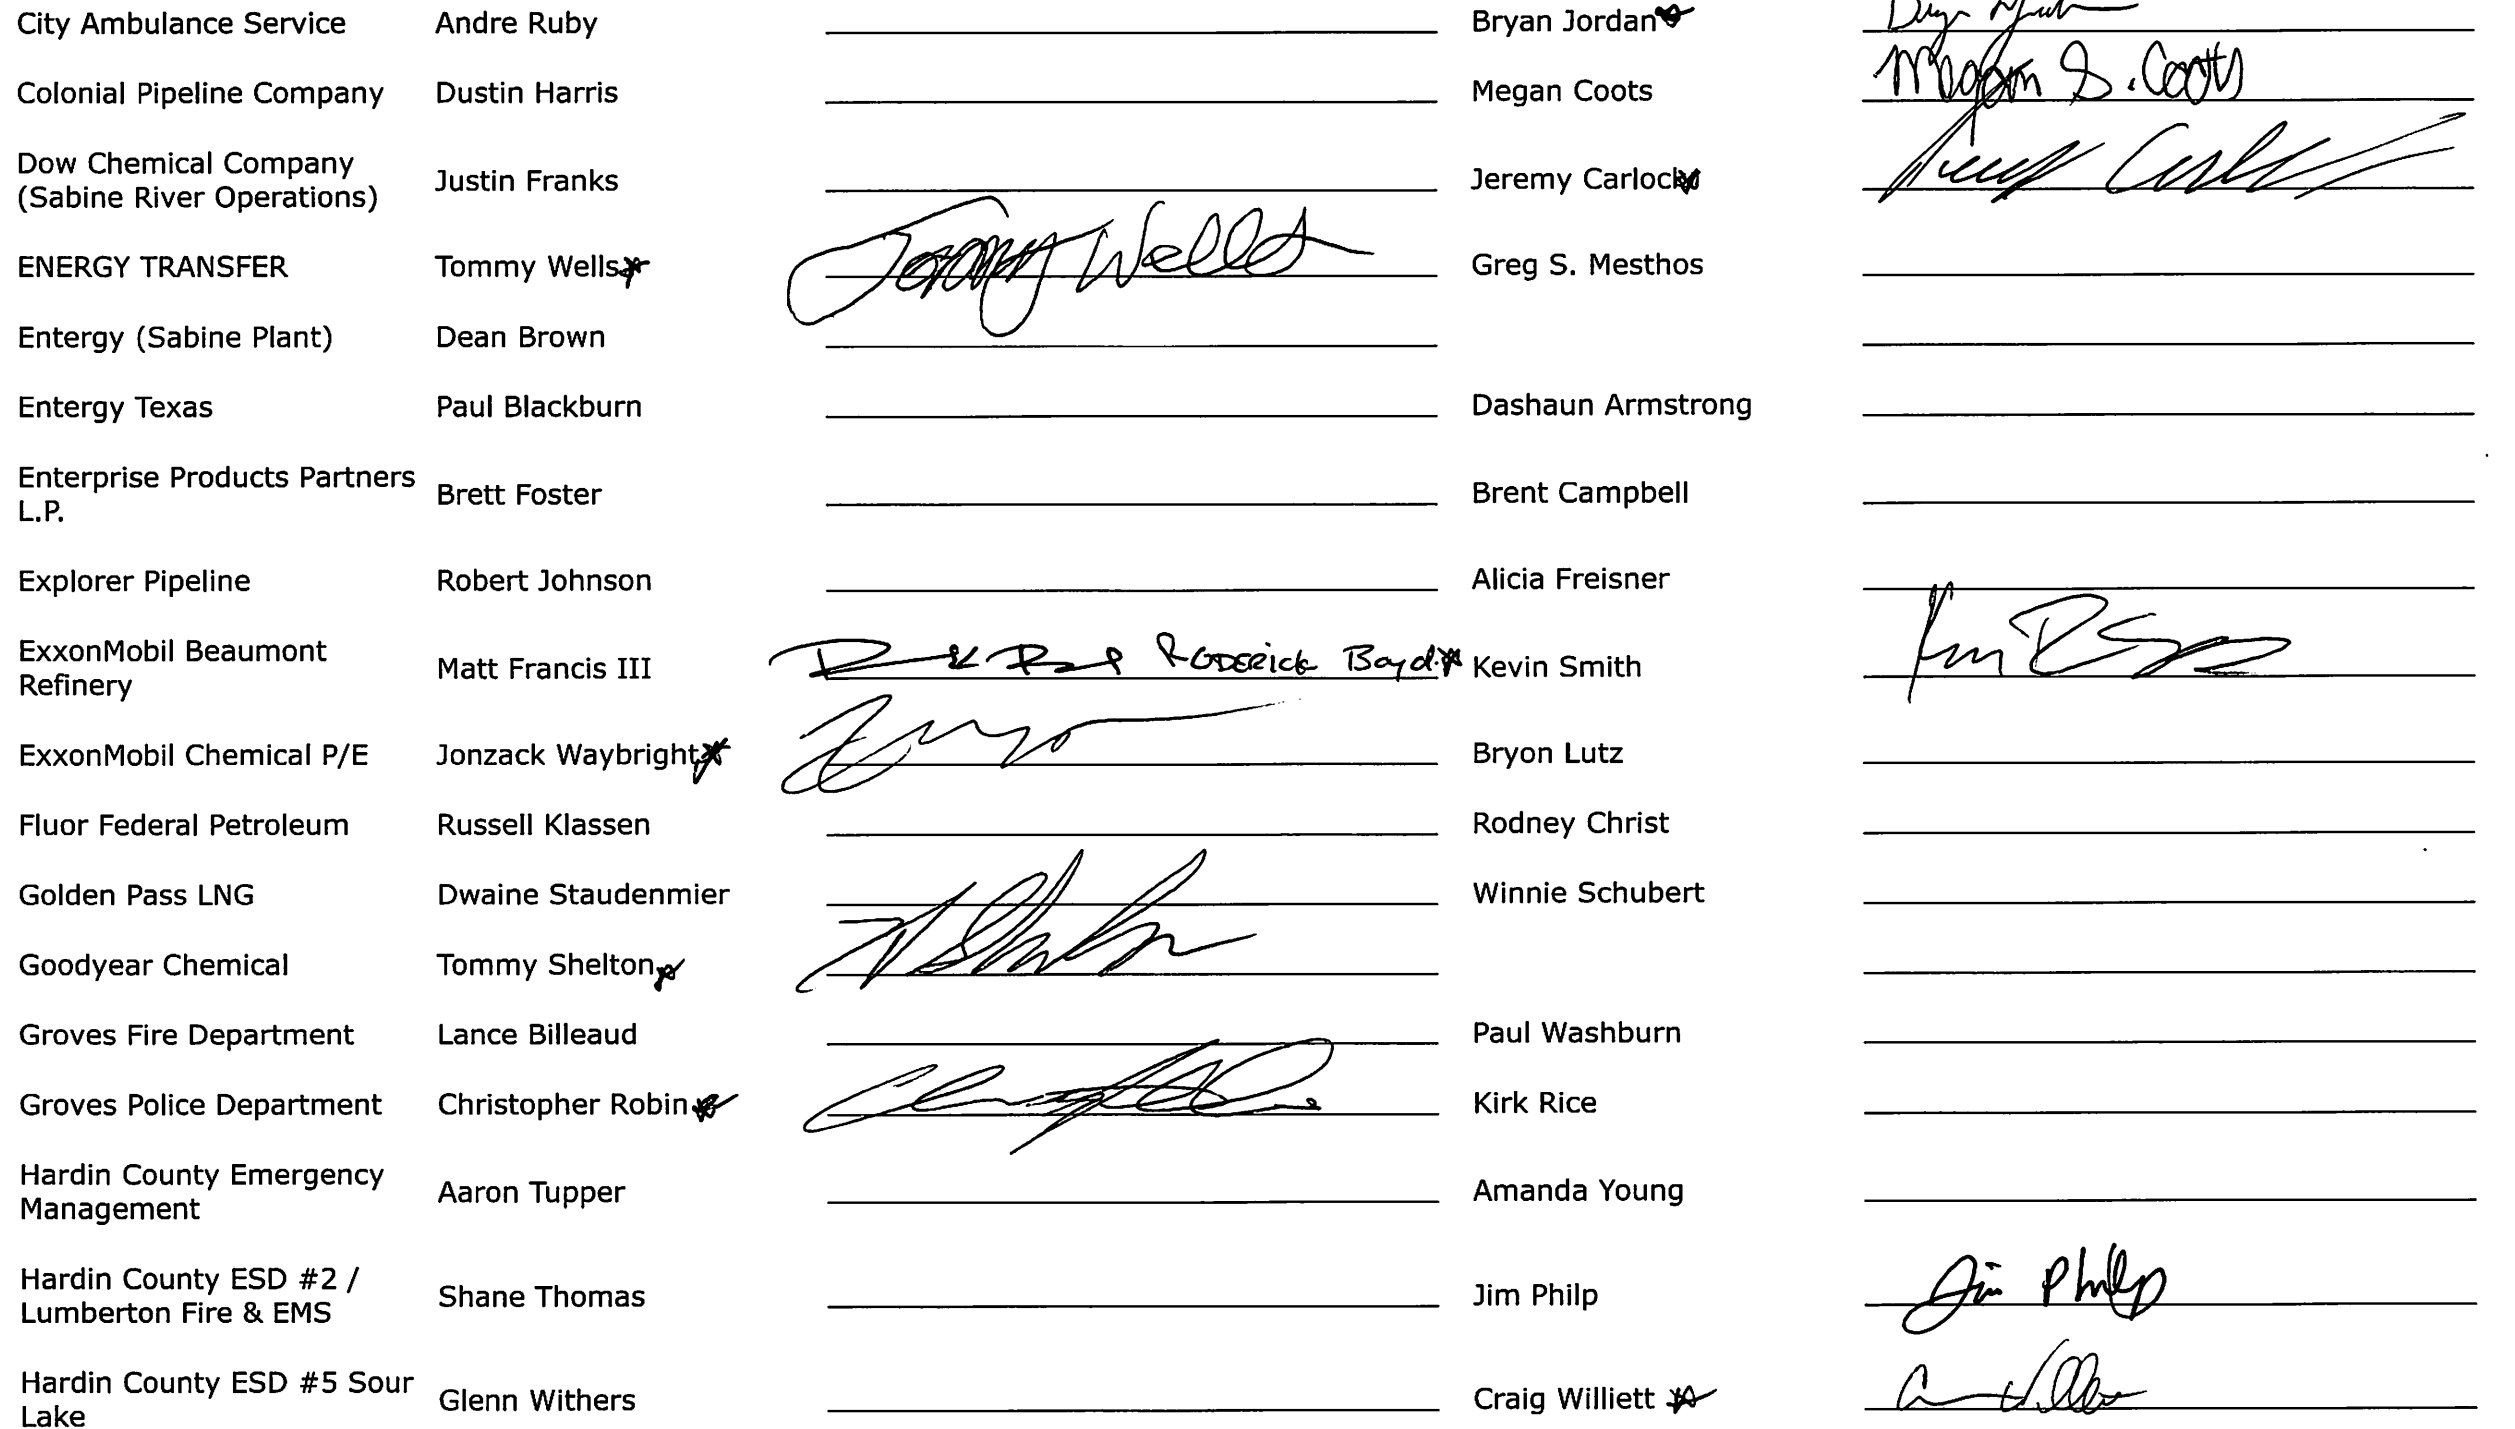 City Ambulance Service Andre Ruby Bryan Jordan
Colonial Pipeline Company Dustin Harris Megan Coots Megan S. Coots
Dow Chemical Company
(Sabine River Operations) Justin Franks Jeremy Carlock
ENERGY TRANSFER Tommy Wells Tommy Wells Greg S. Mesthos
Entergy (Sabine Plant) Dean Brown
Entergy Texas Paul Blackburn Dashaun Armstrong
Enterprise Products Partners
L.P. Brett Foster Brent Campbell
Explorer Pipeline Robert Johnson Alicia Freisner
ExxonMobil Beaumont
Refinery Matt Francis III RODERICK Boyd Kevin Smith
ExxonMobil Chemical P/E Jonzack Waybright Bryon Lutz
Fluor Federal Petroleum Russell Klassen Rodney Christ
Golden Pass LNG Dwaine Staudenmier Winnie Schubert
Goodyear Chemical Tommy Shelton
Groves Fire Department Lance Billeaud Paul Washburn
Groves Police Department Christopher Robin Kirk Rice
Hardin County Emergency
Management Aaron Tupper Amanda Young
Hardin County ESD #2 /
Lumberton Fire & EMS Shane Thomas Jim Philp Jim Philp
Hardin County ESD #5 Sour
Lake Glenn Withers Craig Williett